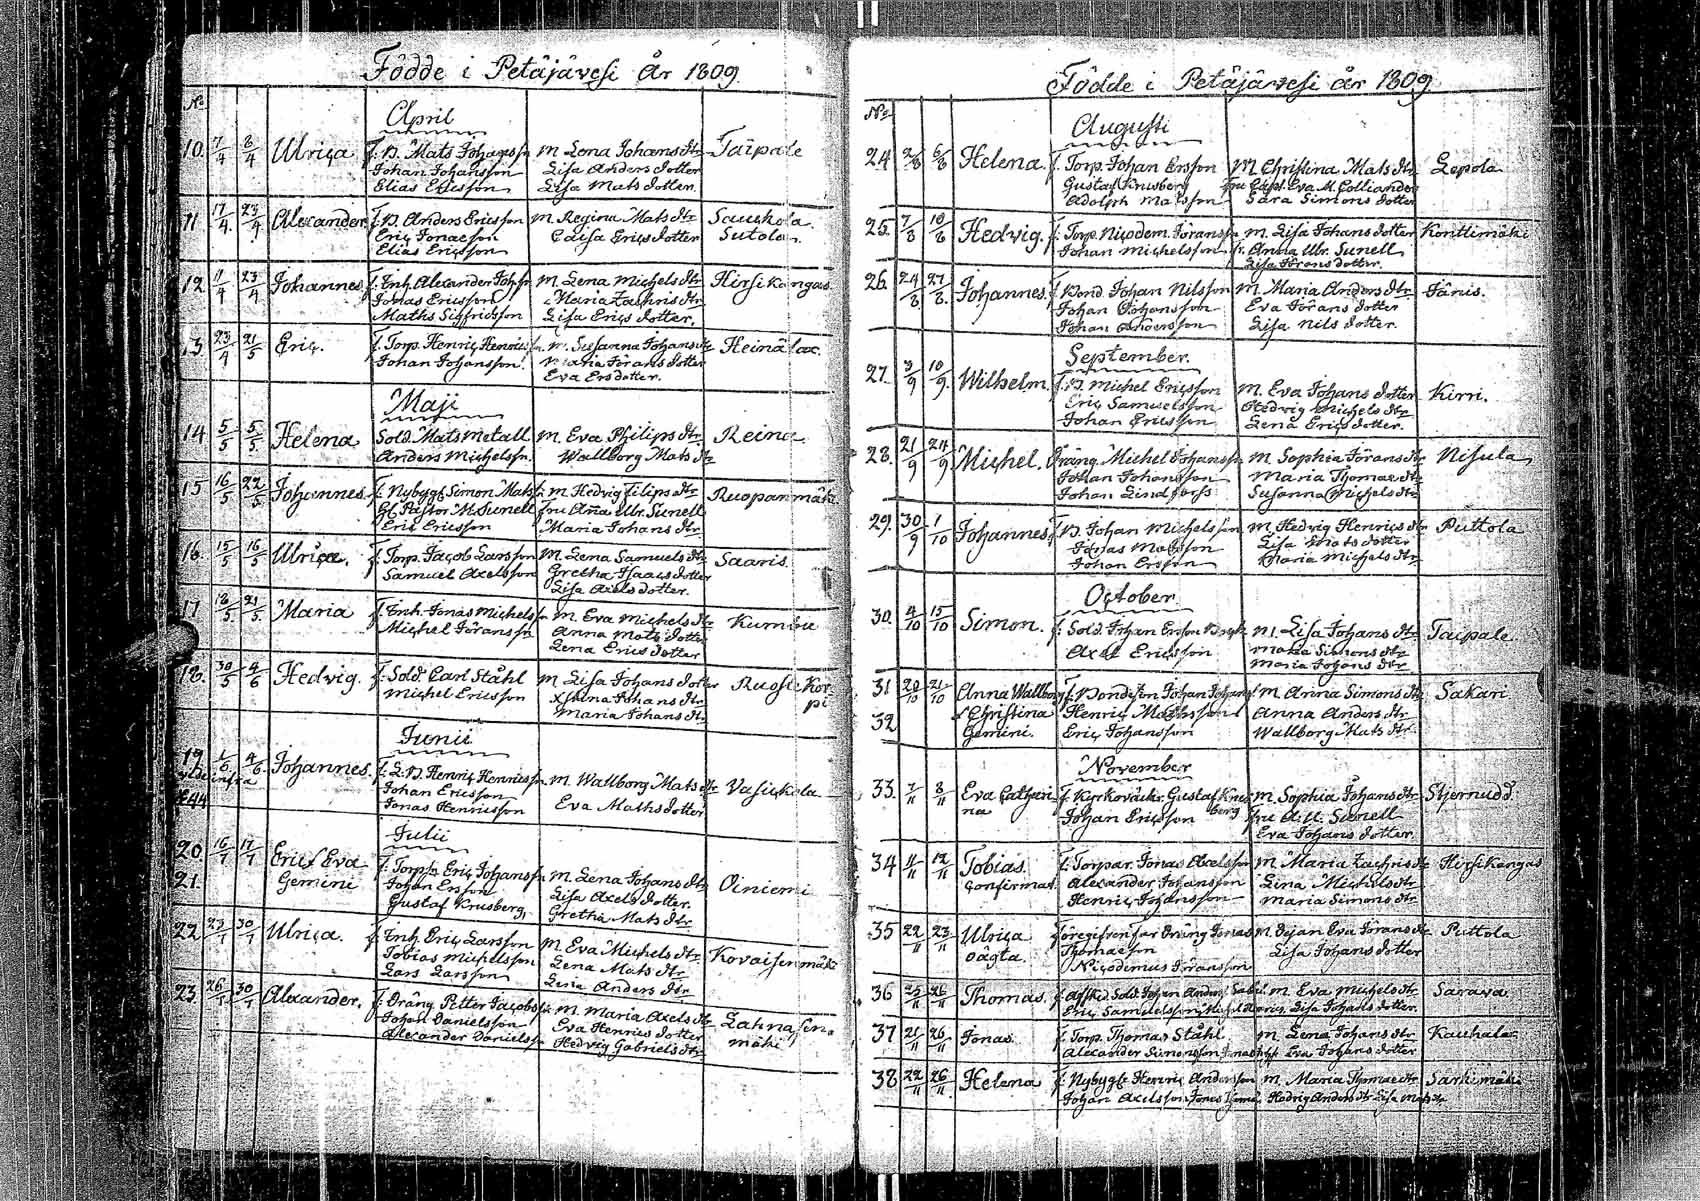 Födde i Petäjävesi År 1809.
No
April
10. 7/4 8/4 Ulrica f. B. Mats Johansson m. Lena Johans dtr Taipale
Johan Johansson Lisa Anders dotter
Elias Ericsson Lisa Mats dotter.
11 17/4. 23/4 Alexander f. B. Anders Ericsson m. Regina Mats dtr Sauckola
Eric Jonaeson Caisa Erics dotter Sutola
Elias Ericsson
12. 11/4 23/4 Johannes f. Inh. Alexander Joh:sn m. Lena Michels dtr Hirsikangas
Jonas Ericsson Maria Zachris dtr
Maths Sigfridsson Lisa Erics dotter.
13 23/4 21/5 Eric. f. Torp. Henric Henricss. m. Susanna Johans dtr Heinälax.
Johan Johansson. Maria Jörans dotter
Eva Ersdotter.
Maji
14 5/5 5/5. Helena Sold. Mats Metall m. Eva Philips dtr Reina
Anders Michelss. Wallborg Mats dtr
15 16/5 22/5. Johannes f. Nybygg. Simon Matss. m. Hedvig Filips dtr Ruopanmäki
Gl. Pastor M. Sunell fru Anna Ulr. Sunell
Eric Ericsson Maria Johans dtr
16. 15/5 16/5 Ulrica. f. Torp. Jacob Larsson m. Lena Samuels dtr Saaris.
Samuel Axelsson Gretha Isaacs dotter
Lisa Axels dotter.
17 18/5 21/5. Maria f. Inh. Jonas Michelss. m. Eva Michels dtr Kumbu
Michel Jöransson Anna Mats dotter
Lena Erics dotter
18. 30/5 4/6 Hedvig. f. Sold. Carl Ståhl m. Lisa Johans dotter Ruoste Kor
Michel Ericsson Stina Johans dtr pi
Maria Johans dtr
Junii
19 1/6. 4/6. Johannes. f. L.B. Henric Henricsson m. Wallborg Mats dtr Vasickola
vide infra Johan Ericsson Eva Maths dotter
№44 Jonas Henricsson
Julii
20 16/7 17/7 Eric & Eva f. Torp. Eric Johansson m. Lena Johans dtr Oiniemi
21. Gemini Johan Ersson Lisa Axels dotter.
Gustaf Krusberg, Gretha Mats dtr
22 23/7 30/7 Ulrica. f. Inh. Eric Larsson m. Eva Michels dtr Kovaisenmäki
Tobias Michelsson Lena Mats dtr
Lars Larsson Lena Anders dtr
23 26/7 30/7 Alexander. f. Dräng Petter Jacobss. m. Maria Axels dtr Lahnasen-
Johan Danielsson Eva Henrics dotter mäki
Alexander Danielss. Hedvig Gabriels dtr
Födde i Petäjävesi år 1809.
No
Augusti
24 2/8 6/8 Helena. f. Torp. Johan Ersson m. Christina Mats dtr Lepola
Gustaf Krusberg fru Capt. Eva M. Colliander
Adolph Matsson Sara Simons dotter
25. 7/8 10/8 Hedvig. f. Torp. Nicodem. Jöransson m. Lisa Johans dotter Konttimäki
Johan Michelsson fr. Anna Ulr. Sunell
Lisa Jörans dotter.
26. 24/8 27/8. Johannes. f. Bond. Johan Nilsson m. Maria Anders dtr Jänis.
Johan Johansson Eva Jörans dotter
Johan Andersson Lisa Nils dotter.
September.
27. 3/9 10/9. Wilhelm. f. B. Michel Ericsson m. Eva Johans dotter Kirri.
Eric Samuelsson Hedvig Michels dtr
Johan Ericsson Lena Erics dotter.
28. 21/9 24/9 Michel. Dräng. Michel Johansson m. Sophia Jörans dtr Nisula
Johan Johansson Maria Thomas dtr
Johan Lindforss Susanna Michels dtr
29. 30/9 1/10 Johannes f. B. Johan Michelsson m. Hedvig Henrics dtr Puttola
Jonas Matsson Lisa Mats dotter
Johan Ersson Maria Michels dtr
October
30. 4/10 15/10 Simon. f. Sold. Johan Ersson m. Lisa Johans dtr Taipale
Axel Ericsson Maria Simons dtr
Maria Johans dtr
31 20/10 21/10 Anna Wallborg f. Bondeson Johan Johanss. m. Anna Simons dtr Sakari
32 & Christina Henric Mathsson Anna Anders dtr
Gemini. Eric Johansson Wallborg Mats dtr
November
33. 7/11 8/11 Eva Cathari f. Kyrkoväckt. Gustaf Krus m. Sophia Johans dtr Stjernudd.
na Johan Ericsson berg fru A. U. Sunell
Eva Johans dotter.
34 11/11 12/11 Tobias. f. Torpar. Jonas Axelsson m. Maria Zachris dtr Hirsikangas
confirmat. Alexander Johansson Lina Michels dtr
Henric Johansson Maria Simons dtr
35 22/11 23/11 Ulrica föregifven far Dräng Jonas m. Pejan Eva Jörans dtr Puttola
oägta. Thomaeson Lisa Johans dotter
Nicodemus Jöransson
36 25/11 26/11 Thomas. f. Affsked. Sold. Johan Anders. m. Eva Michels dtr Sarava
Eric Samuelsson, Lisa Johans dotter.
37 21/11 26/11 Jonas. f. Torp. Thomas Ståhl m. Lena Johans dtr Kauhala
Alexander Simonsson Eva Johans dotter
38 22/11 26/11. Helena f. Nybygg. Henric Andersson m. Maria Thomae dtr Sarkimäki
Johan Axelsson, Hedvig Anders dtr Lisa Mats dtr.